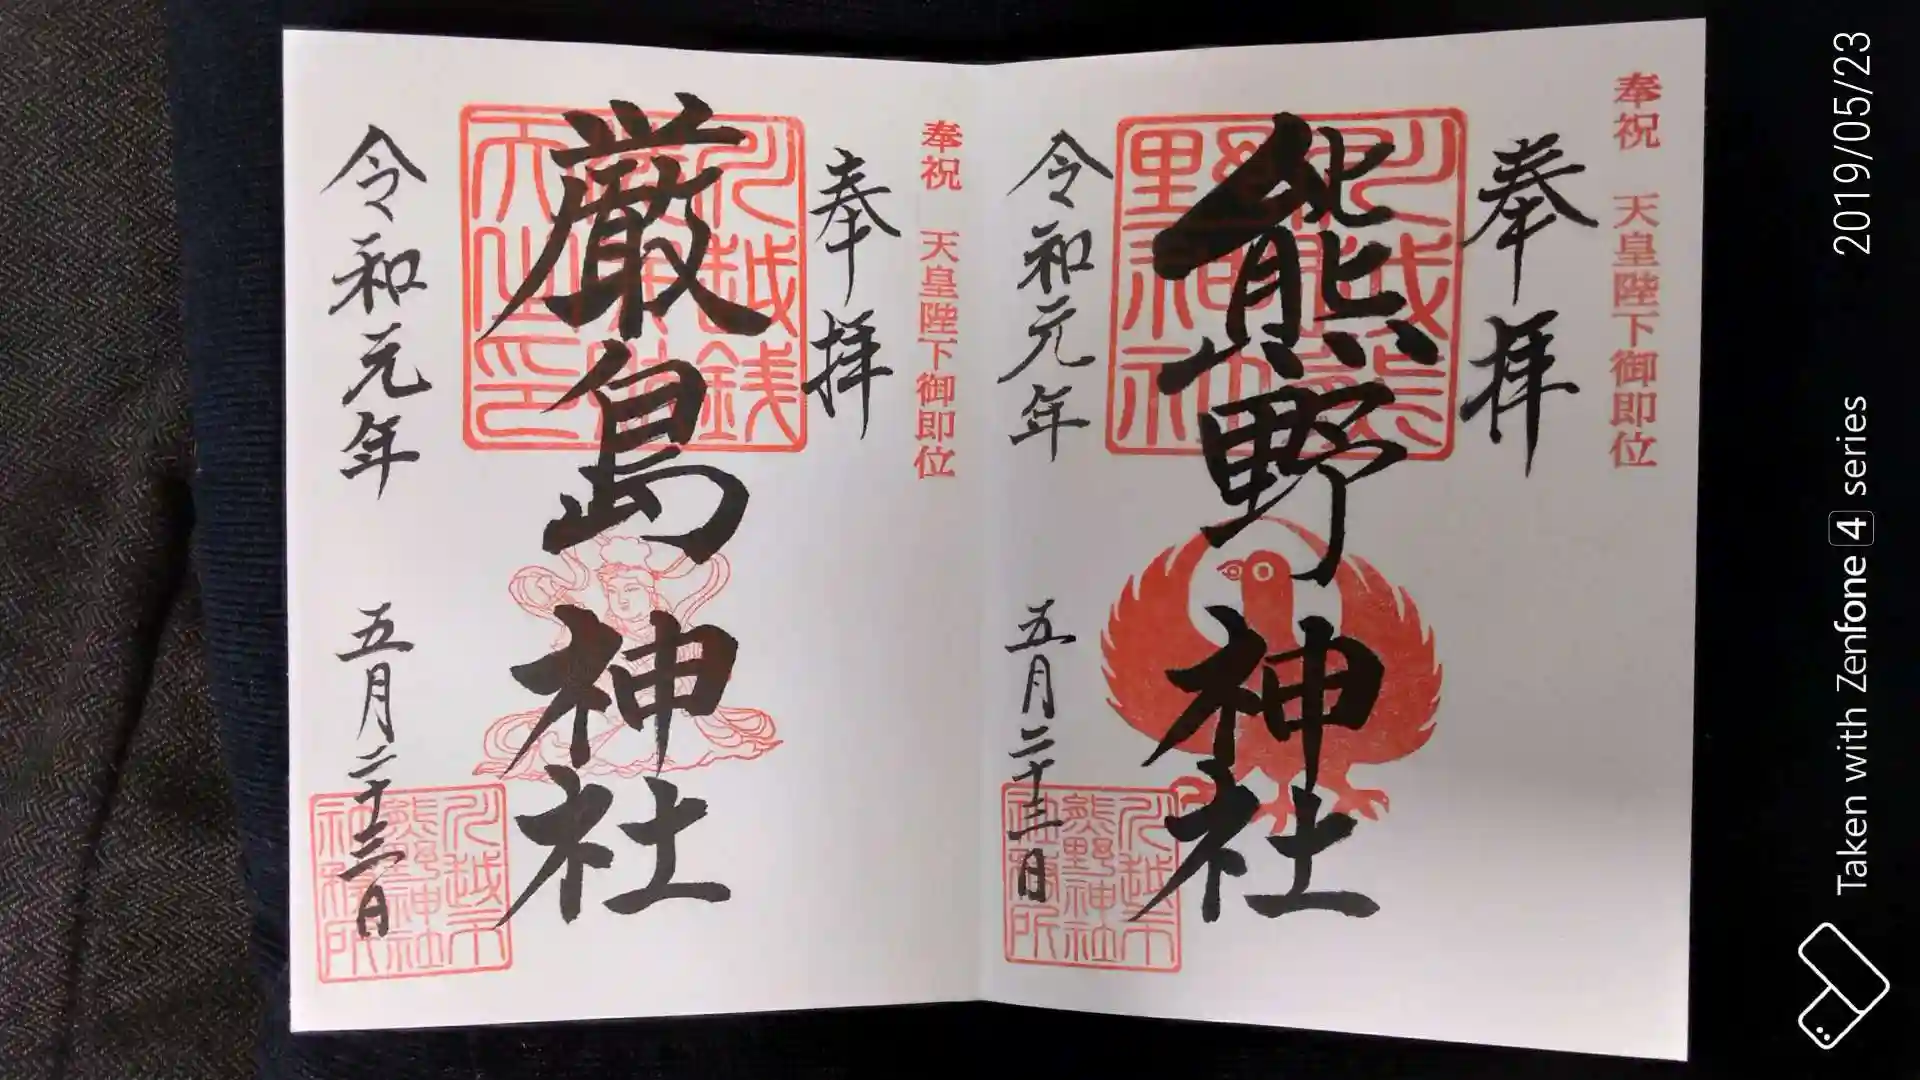 奉祝 天皇陛下御即位
奉拝
熊野神社
令和元年 五月二十三日
川越市
熊野神社
社務所
奉祝 天皇陛下御即位
奉拝
厳島神社
令和元年 五月二十三日
川越市
熊野神社
社務所
2019/05/23
Taken with Zenfone 4 series